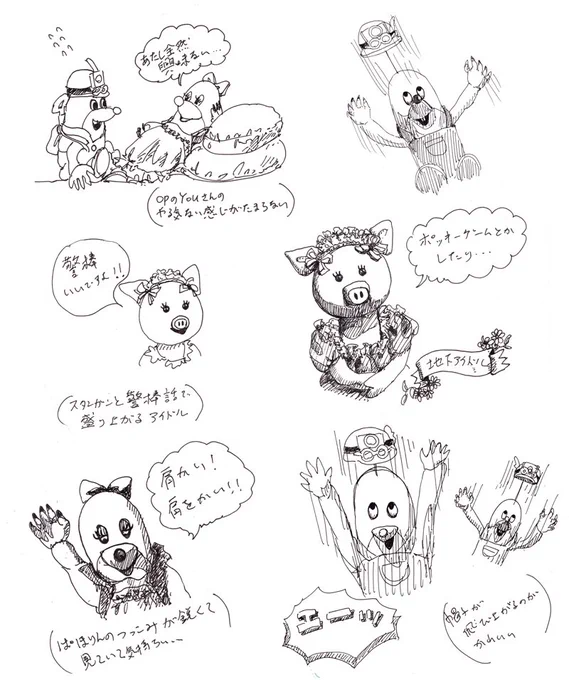 あたし全然
興味ない…
(OPのYouさんの
やる気ない感じがたまらない)
警棒
いいですよ!!
ポッキーゲームとか
したり…
地下アイドル
(スタンガンと警棒話で
盛り上がるアイドル)
肩かい!
肩をかい!!
エーッ
(ぱほりんのつっこみが鋭くて
見ていて気持ちいい…)
(帽子が
飛び上がるのが
かわいい)